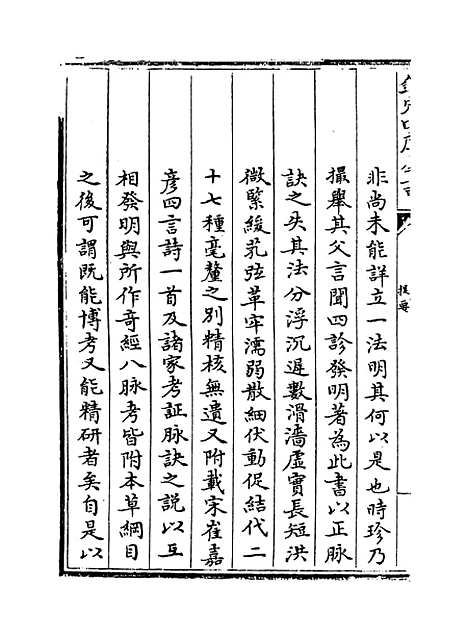 欽定四庫全書
提要
非尚未能詳立一法明其何以是也時珍乃
撮舉其父言聞四診發明著為此書以正脈
訣之失其法分浮沉遲數滑濇虛實長短洪
微緊緩芤弦革牢濡弱散細伏動促結代二
十七種毫釐之别精核無遺又附載宋崔嘉
彦四言詩一首及諸家考証脉訣之說以互
相發明與所作竒經八脉考皆附本草綱目
之後可謂既能博考又能精研者矣自是以